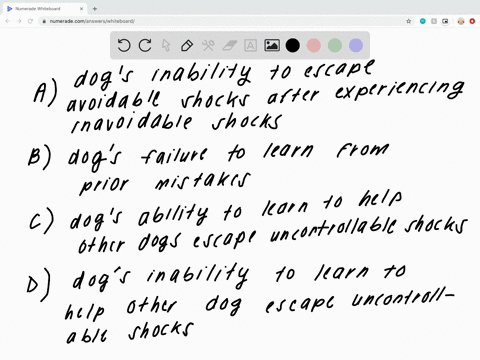 Numerade Whiteboard
numerade.com/answers/whiteboard/
A) dog's inability to escape
avoidable shocks after experiencing
inavoidable shocks
B) dog's failure to learn from
prior mistakes
C) dog's ability to learn to help
other dogs escape uncontrollable shocks
D) dog's inability to learn to
help other dog escape uncontroll-
able shocks